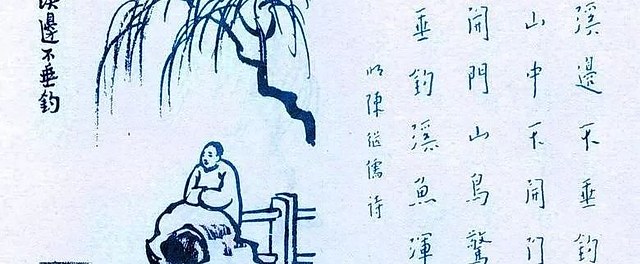 溪邊不垂釣
山中不開門
開門山鳥驚
垂釣溪魚渾
明陳繼儒詩
溪邊不垂釣